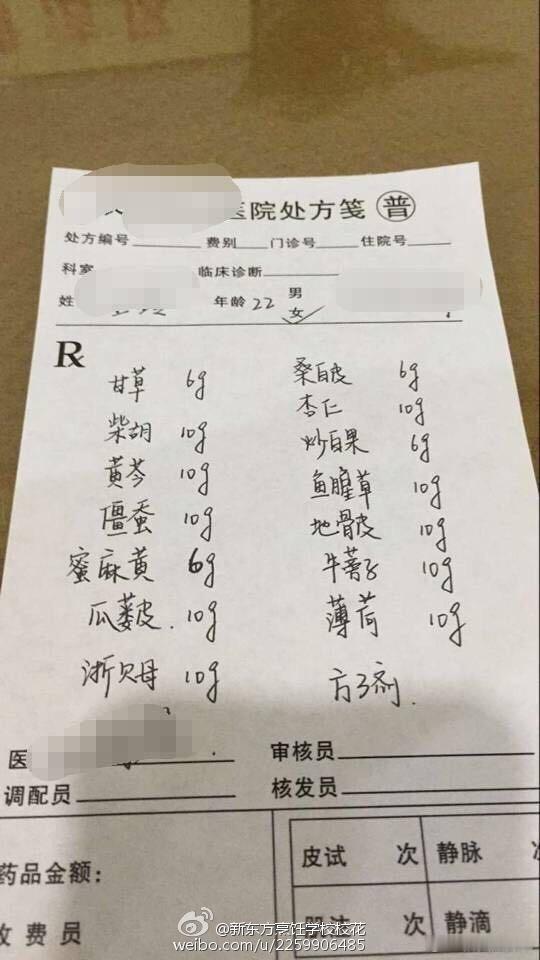 医院处方笺 普
处方编号 费别 门诊号 住院号
科室 临床诊断
姓 年龄 22 男
女 ✓
R
甘草 6g 桑白皮 6g
柴胡 10g 杏仁 10g
黄芩 10g 炒白果 6g
僵蚕 10g 鱼腥草 10g
蜜麻黄 6g 地骨皮 10g
瓜蒌皮. 10g 牛蒡子 10g
浙贝母 10g 薄荷 10g
方3剂.
医 审核员
调配员 核发员
药品金额: 皮试 次 静脉
收费员 静滴
@新东方烹饪学校校花
weibo.com/u/2259906485